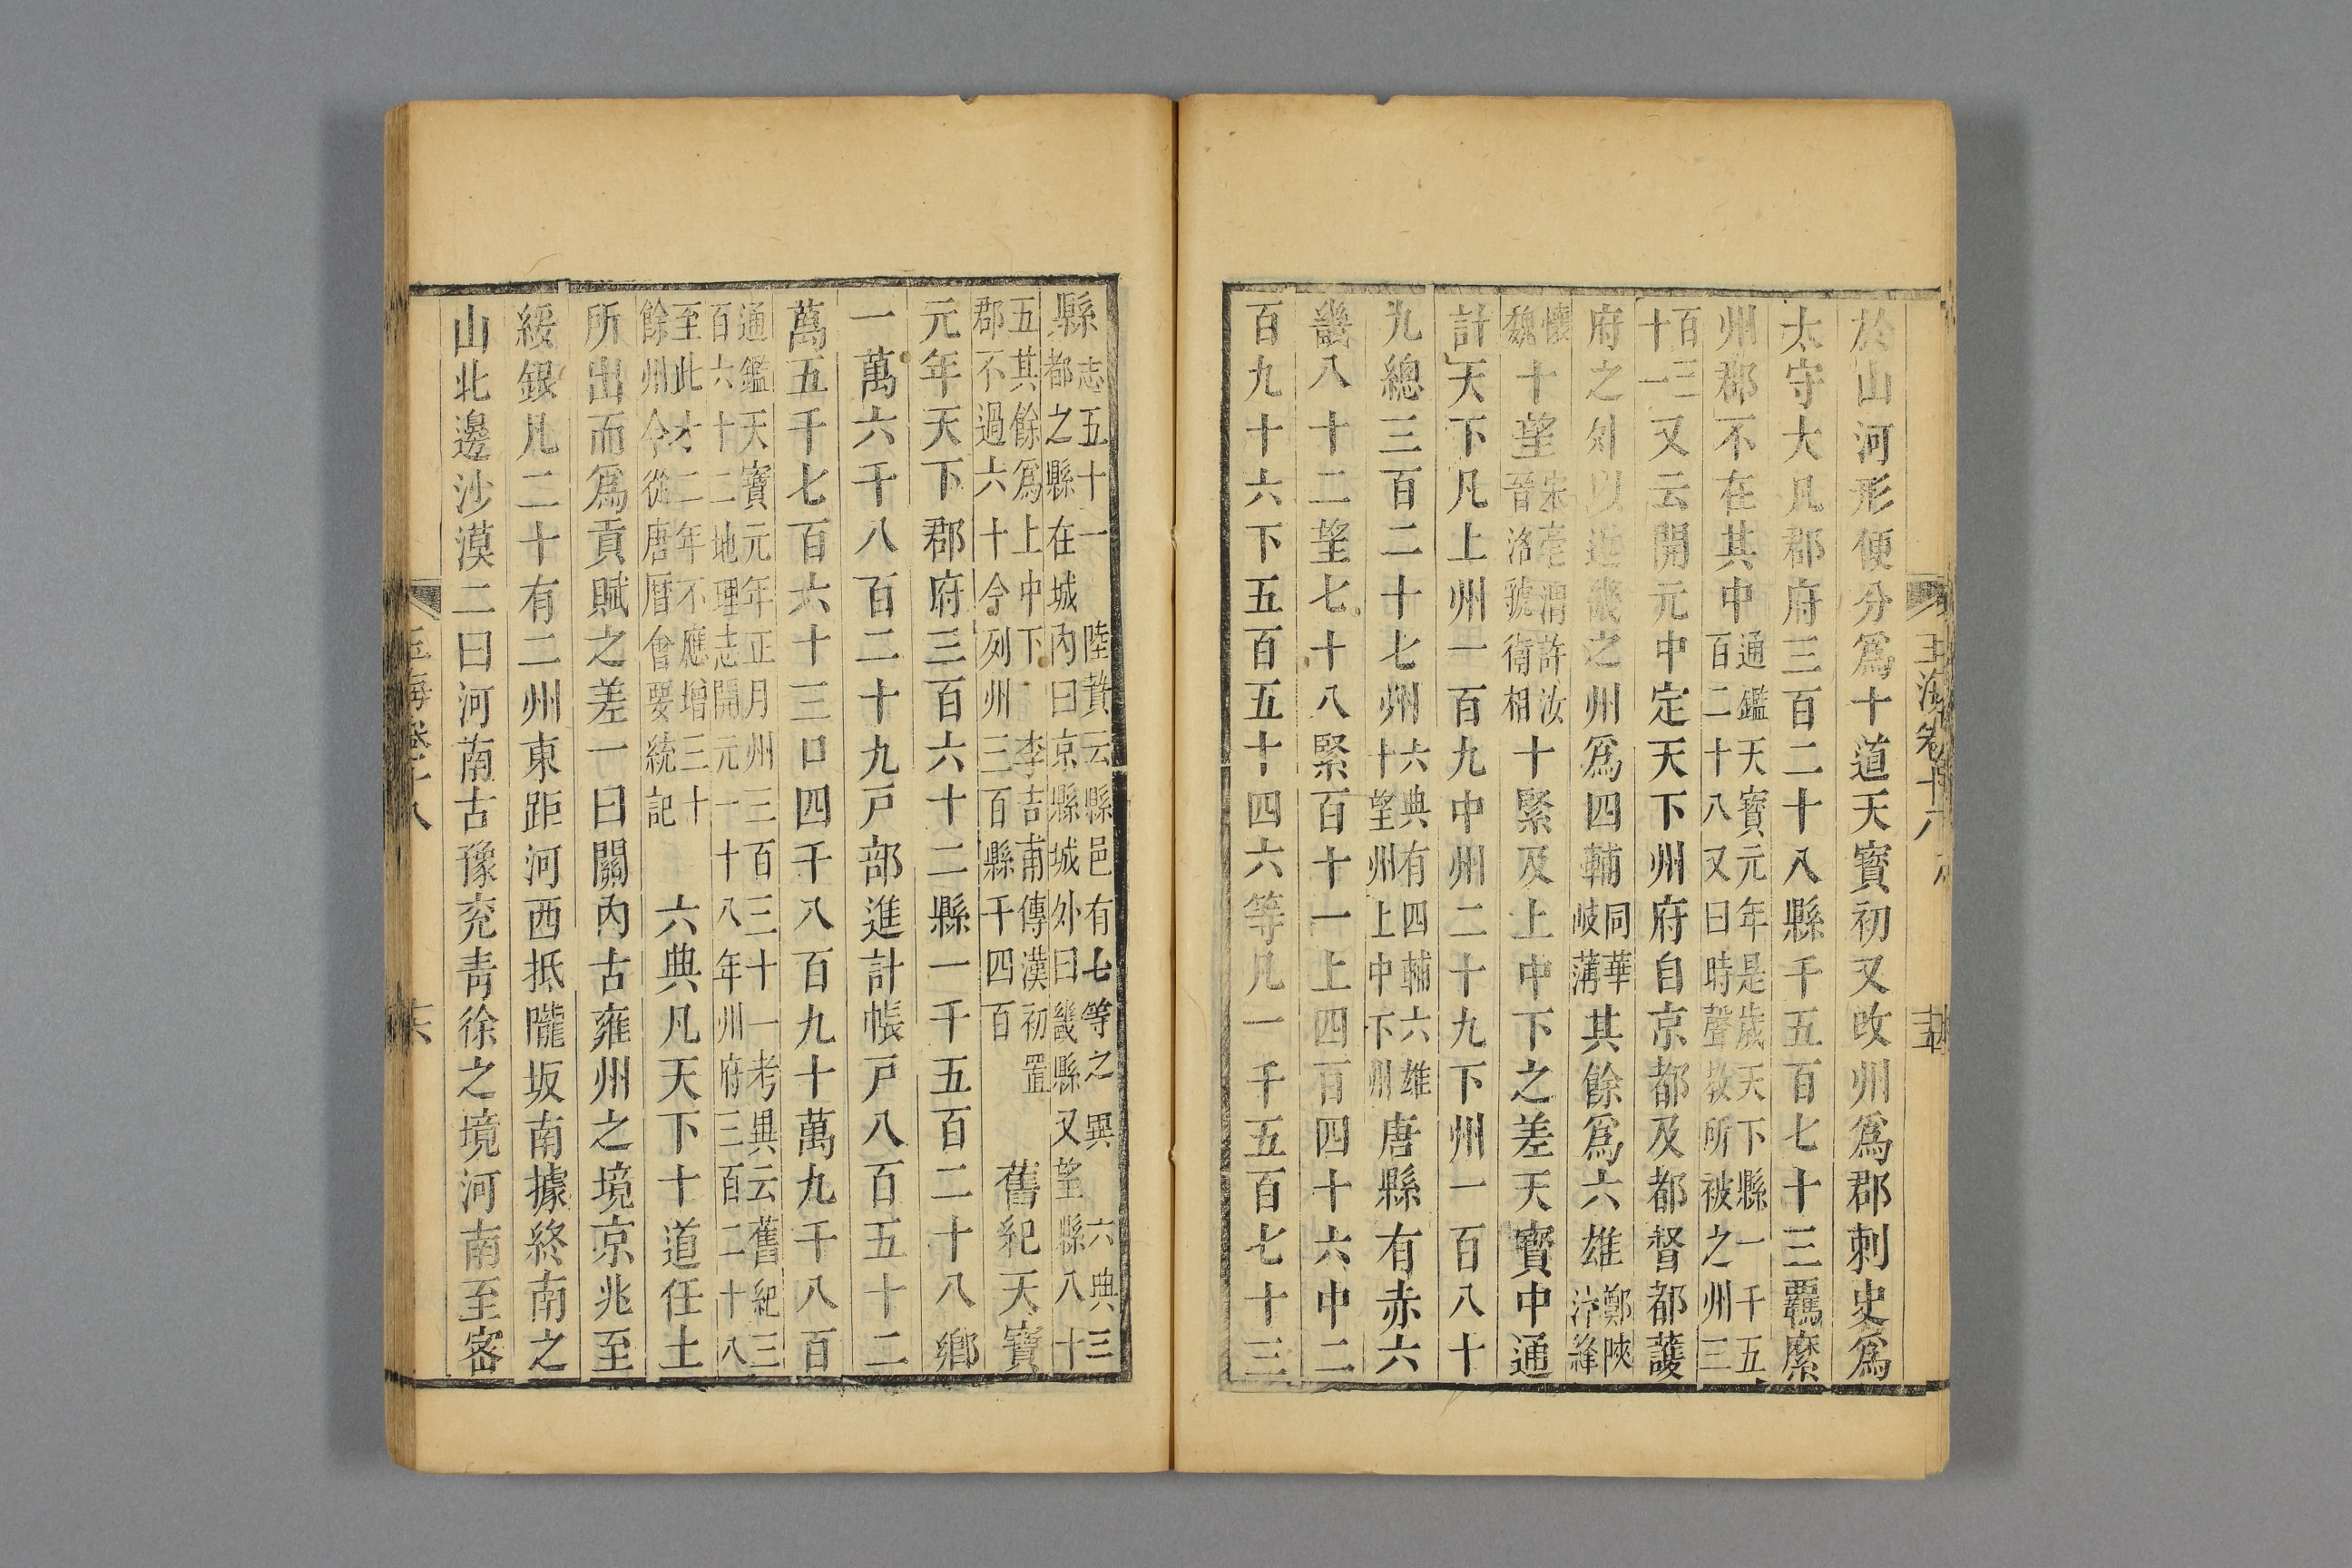 於山河形便分爲十道天寶初又改州爲郡刺史爲
太守大凡郡府三百二十八縣千五百七十三羈縻
州郡不在其中
通鑑天寶元年是歲天下縣一千五
百二十八又曰時聲教所被之州三
百三
十一
又云開元中定天下州府自京都及都督都護
府之外以近畿之州爲四輔
同華
岐蒲
其餘爲六雄
鄭陝
汴絳
懷
魏
十望
宋亳滑許汝
晉洛虢衛相
十緊及上中下之差天寶中通
計天下凡上州一百九中州二十九下州一百八十
九總三百二十七州
六典有四輔六雄
十望州上中下州
唐縣有赤六
畿八十二望七十八緊百十一上四百四十六中二
百九十六下五百五十四六等凡一千五百七十三
縣
志五十一 陸贄云縣邑有七等之異 六典三
都之縣在城內曰京縣城外曰畿縣又望縣八十
五其餘爲上中下 李吉甫傳漢初置
郡不過六十今列州三百縣千四百
舊紀天寶
元年天下郡府三百六十二縣一千五百二十八鄉
一萬六千八百二十九戸部進計帳戸八百五十二
萬五千七百六十三口四千八百九十萬九千八百
通鑑天寶元年正月州三百三十一考異云舊紀三
百六十二地理志開元一十八年州府三百二十八
至此才二年不應增三十
餘州今從唐曆會要統記
六典凡天下十道任土
所出而爲貢賦之差一曰關內古雍州之境京兆至
綏銀凡二十有二州東距河西抵隴坂南據終南之
山北邊沙漠二曰河南古豫兗青徐之境河南至密
玉海卷十八